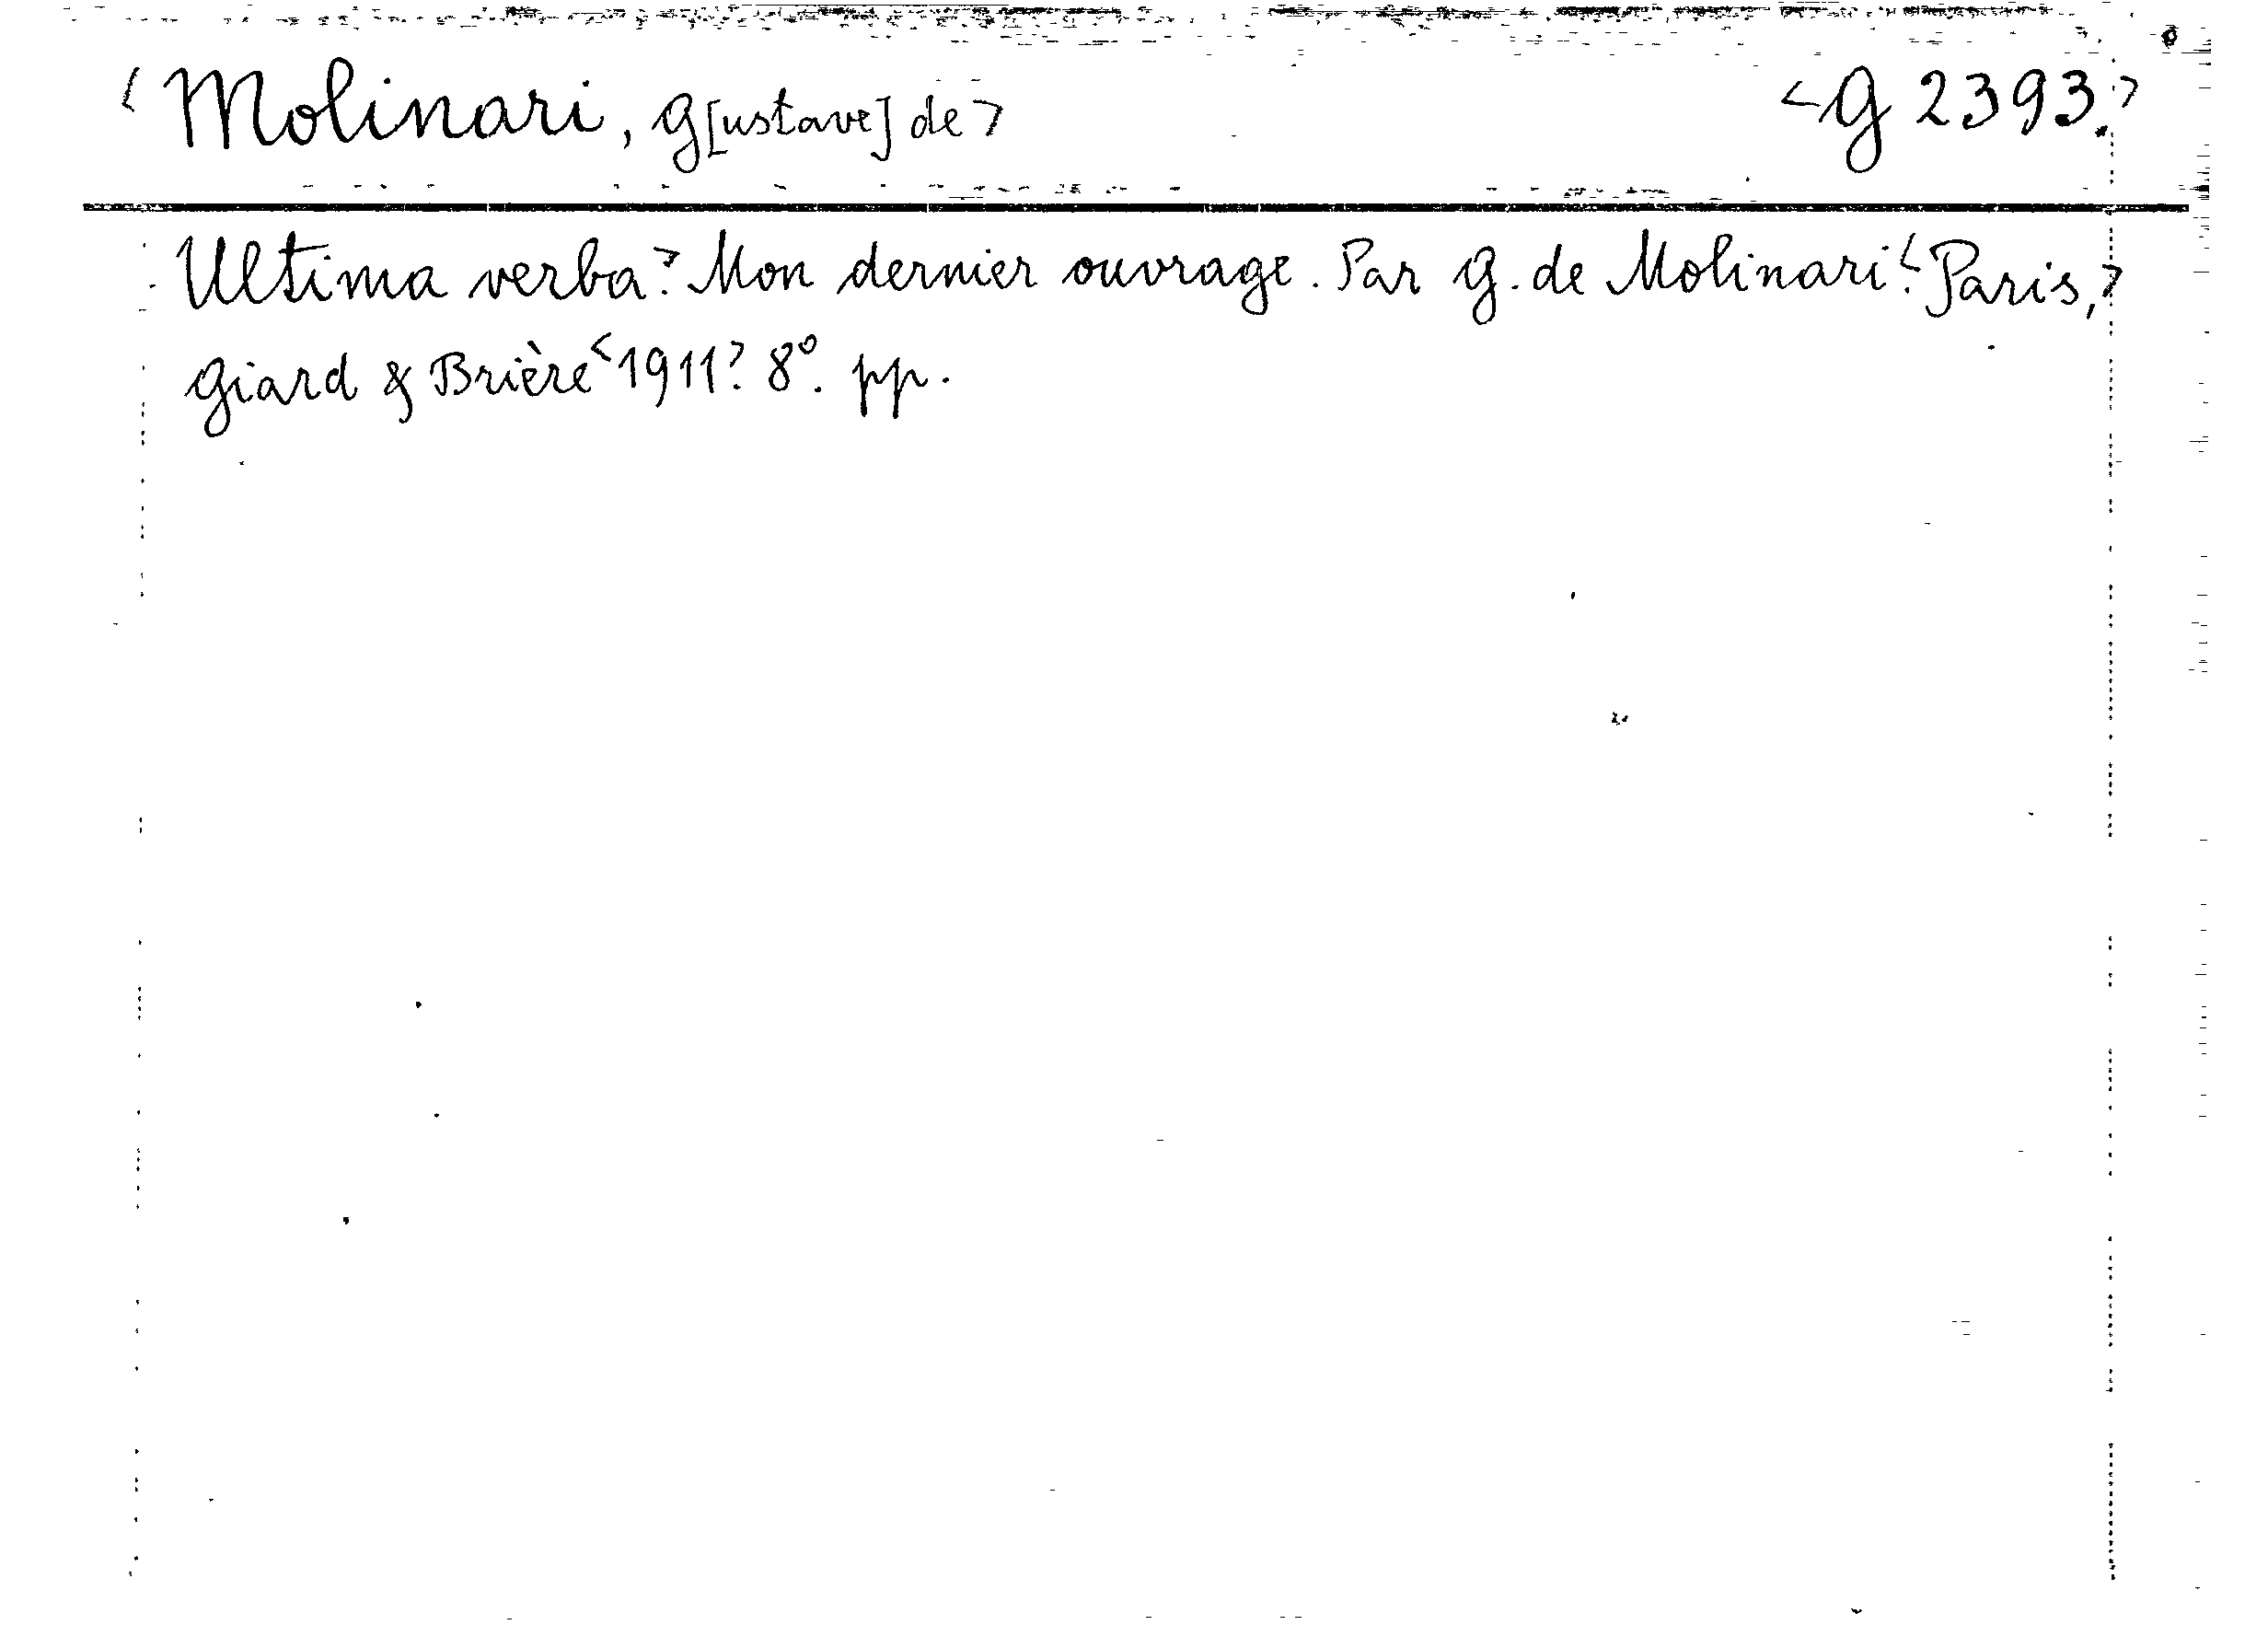 <Molinari, G[ustave] de>
<G 2393.>
Ultima verba.> Mon dernier ouvrage. Par G. de Molinari.< Paris,>
Giard & Brière <1911>. 8°. pp.